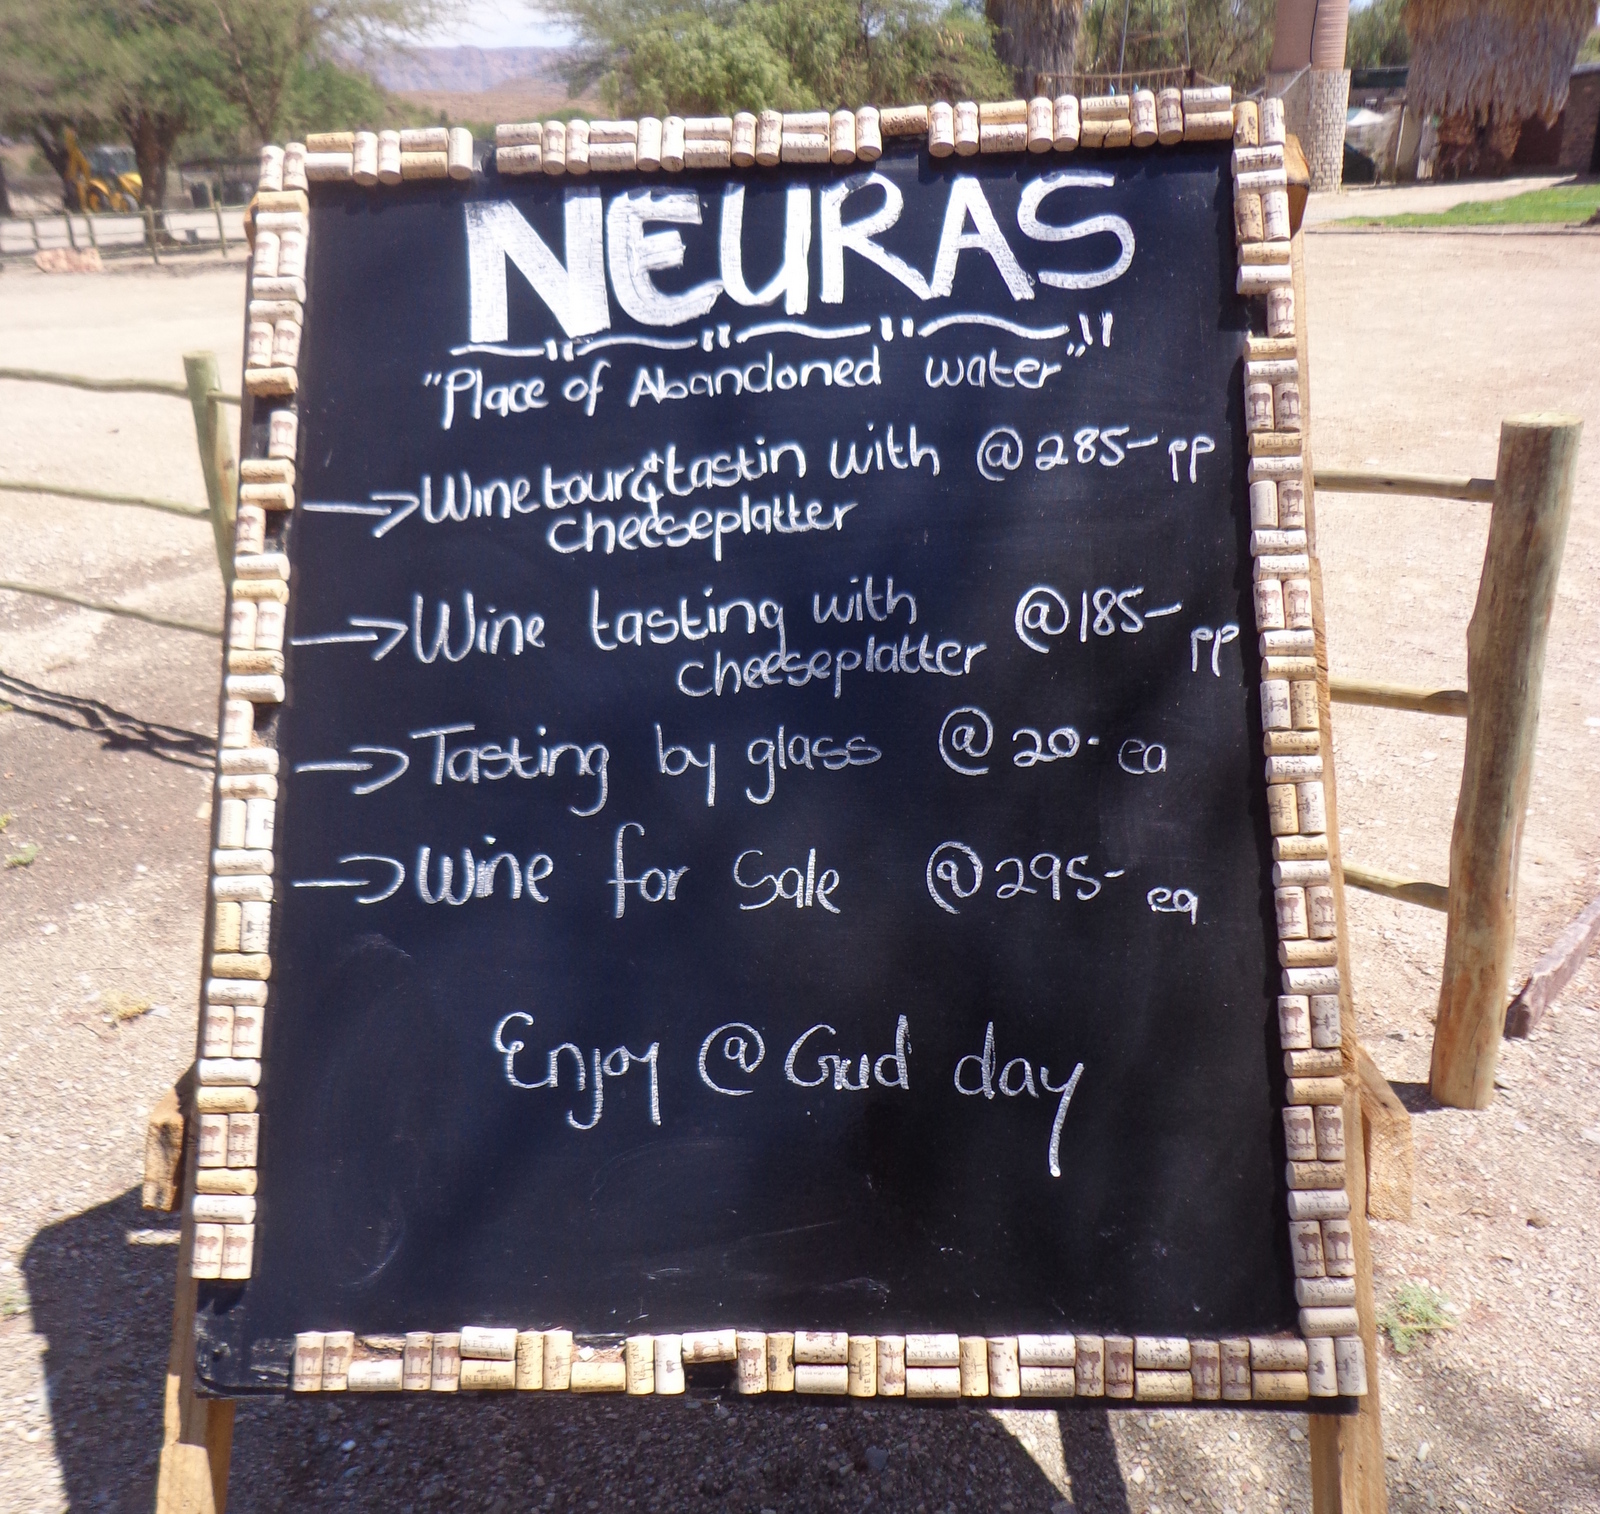 NEURAS
"Place of Abandoned water"
Wine tour & tastin with @ 285- pp
cheeseplatter
Wine tasting with @ 185- pp
cheeseplatter
Tasting by glass @ 20- ea
Wine for Sale @ 295- ea
Enjoy @ Gud day